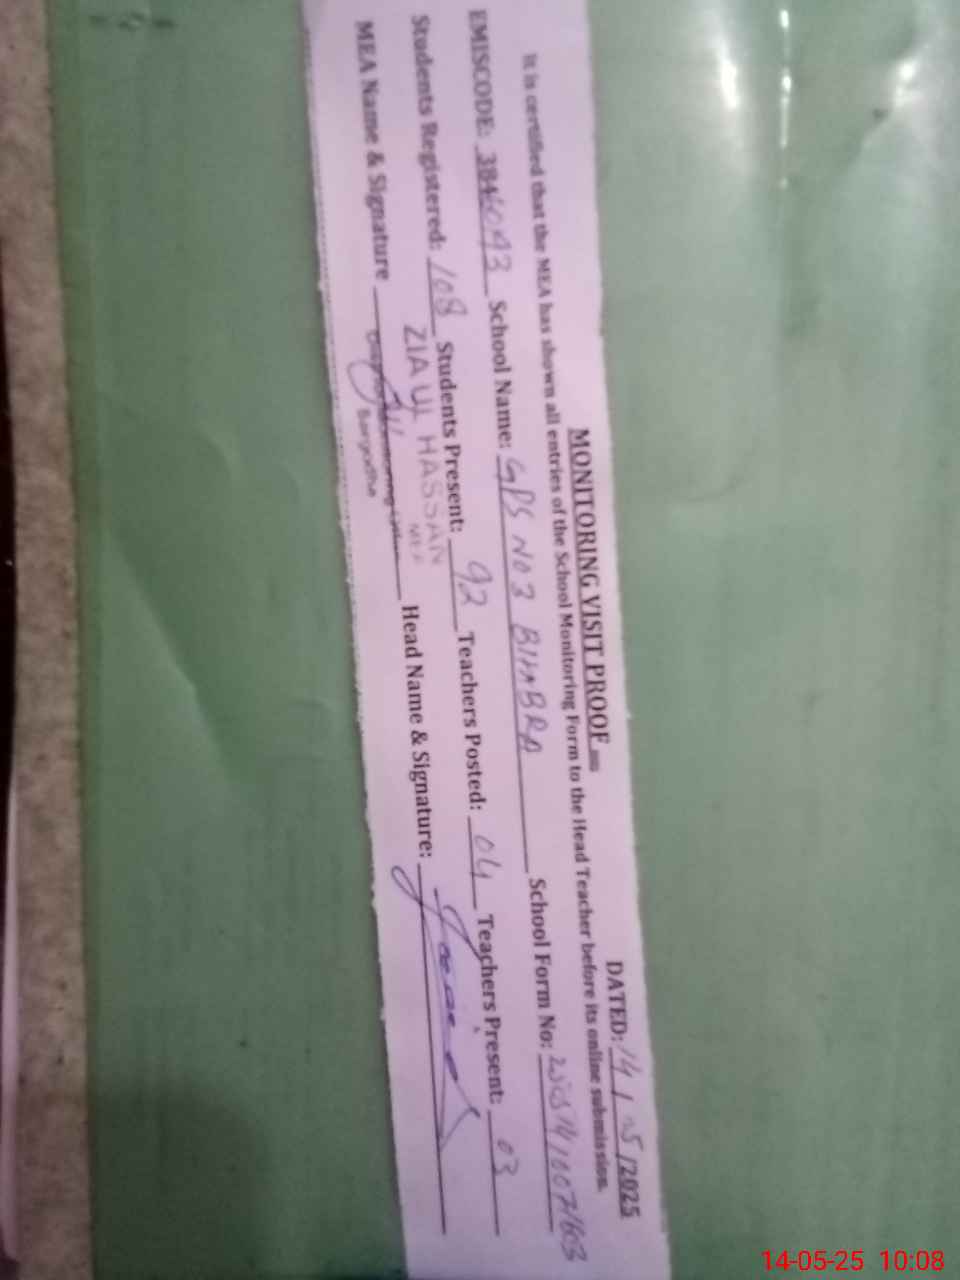 MONITORING VISIT PROOF
DATED: 14 / 05 /2025
It is certified that the MEA has shown all entries of the School Monitoring Form to the Head Teacher before its online submission.
EMISCODE: 3846043 School Name: GPS NO 3 BHABRA School Form No:
Students Registered: 108 Students Present: 92 Teachers Posted: 04 Teachers Present: 03
ZIA UL HASSAN
MEA
MEA Name & Signature Head Name & Signature:
Sargodha
14-05-25 10:08